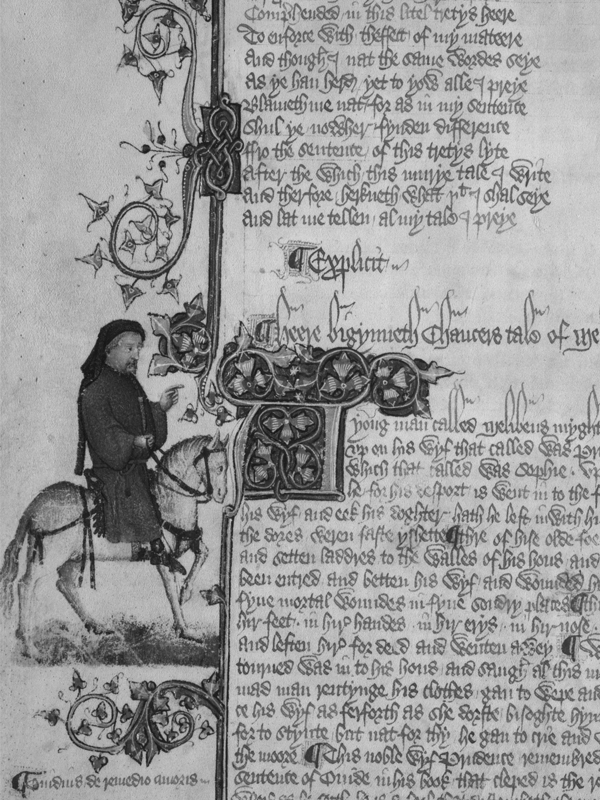 Comprehended in this litel tretys heere
To enforce with theffect of my mateere
And though I nat the same wordes seye
As ye han herd, yet to yow alle I preye
Blameth me nat, for as in my sentence
Shul ye nowher fynden difference
ffro the sentence, of this tretys lyte
After the which this murye tale I write
And therfore herkneth what þt I shal seye
And lat me tellen al my tale I preye
¶ Explicit
¶ Heere bigynneth Chaucers tale of Me
A yong man called Melibeus myght
vp on his wyf that called was Pru
which that called was Sophie. Vp
he for his desport is went in to the f
his wyf and eek his doghter, hath he left inwith hi
the dores weren faste yshette ¶ Thre of hise olde foo
and setten laddres to the walles of his hous and
been entred and betten his wyf and wounded h
fyue mortal woundes in fyue sondry places ¶ Th
hir feet. in hir handes. in hir erys. in hir nose.
and leften hir for deed and wenten awey ¶ W
tourned was in to his hous and saugh al this m
mad man rentynge his clothes, gan to wepe and c
ce his wyf as ferforth as she dorste, bisoghte hym
for to stynte, but nat for thy he gan to crie and
the moore ¶ This noble wyf Prudence remembred
sentence of Ouide in his book that cleped is the re
¶ Ouidius de remedio amoris